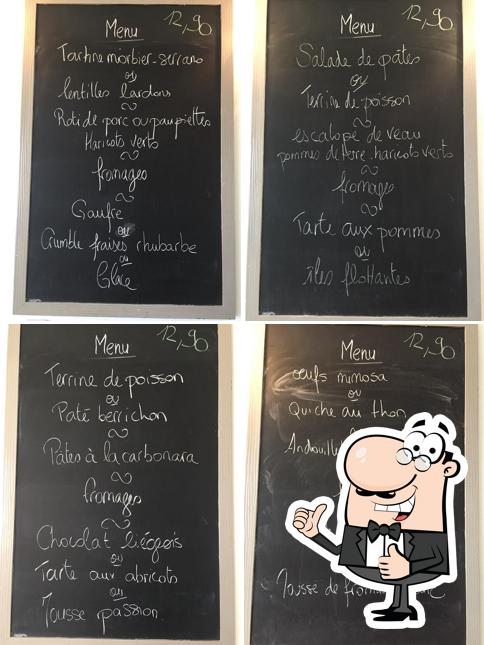 Menu 12,90
Tartine morbier-serrano
ou
lentilles lardons
Roti de porc ou paupiettes
Haricots verts
fromages
Gaufre
ou
Crumble fraises rhubarbe
ou
Glace
Menu 12,90
Salade de pâtes
ou
Terrine de poisson
escalope de veau
pommes de terre, haricots verts
fromage
Tarte aux pommes
ou
îles flottantes
Menu 12,90
Terrine de poisson
ou
Paté berrichon
Pâtes à la carbonara
fromages
Chocolat liégeois
ou
Tarte aux abricots
ou
Mousse passion
Menu 12,90
œufs mimosa
ou
Quiche au thon
Mousse de